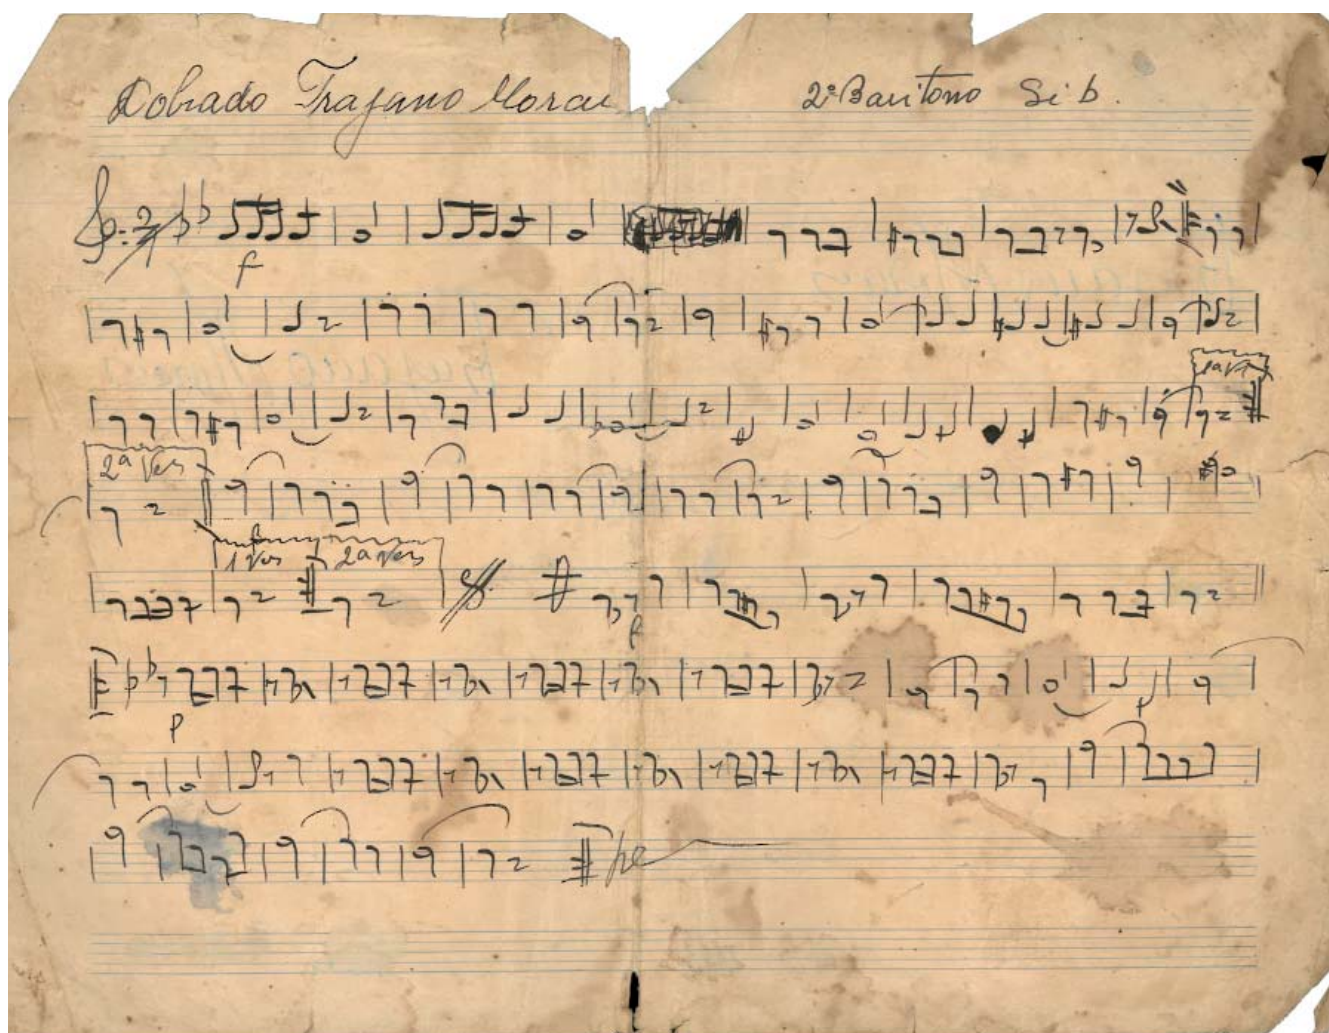 Dobrado Trajano Morae 2º Baritono Si b.
f
1ª Vez
2ª Vez
1 Vez 2ª Vez
f
p